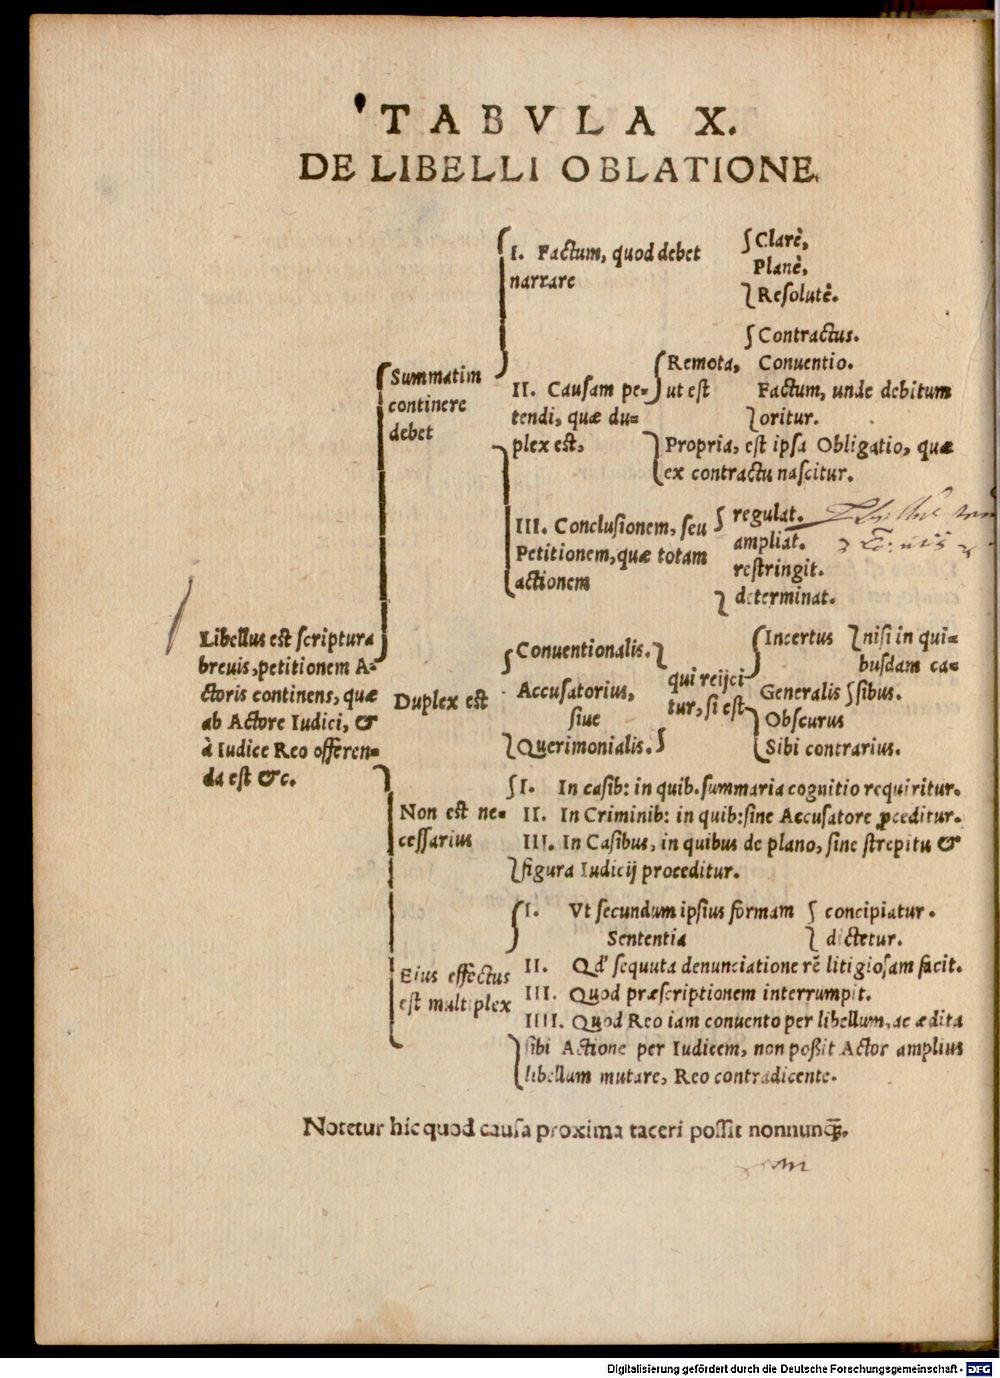 TABVLA X.
DE LIBELLI OBLATIONE.
Libellus est scriptura
breuis, petitionem A-
ctoris continens, quæ
ab Actore Iudici, &
à Iudice Reo offeren-
da est &c.
Summatim
continere
debet
I. Factum, quod debet
narrare
Clarè,
Planè,
Resolutè.
II. Causam pe-
tendi, quæ du-
plex est,
Remota,
ut est
Contractus.
Conuentio.
Factum, unde debitum
oritur.
Propria, est ipsa Obligatio, quæ
ex contractu nascitur.
III. Conclusionem, seu
Petitionem, quæ totam
actionem
regulat.
ampliat.
restringit.
determinat.
Duplex est
Conuentionalis.
Accusatorius,
siue
Querimonialis.
qui reijci
tur, si est
Incertus
Generalis
nisi in qui-
busdam ca-
sibus.
Obscurus
Sibi contrarius.
Non est ne-
cessarius
I. In casib: in quib. summaria cognitio requiritur.
II. In Criminib: in quib: sine Accusatore ꝓceditur.
III. In Casibus, in quibus de plano, sine strepitu &
figura Iudicij proceditur.
Eius effectus
est multiplex
I. Vt secundum ipsius formam
Sententia
concipiatur.
dictetur.
II. Qd' sequuta denunciatione rē litigiosam facit.
III. Quod præscriptionem interrumpit.
IIII. Quod Reo iam conuento per libellum, ac ædita
sibi Actione per Iudicem, non poßit Actor amplius
libellum mutare, Reo contradicente.
Notetur hic quod causa proxima taceri possit nonnunq̃.
Digitalisierung gefördert durch die Deutsche Forschungsgemeinschaft - DFG